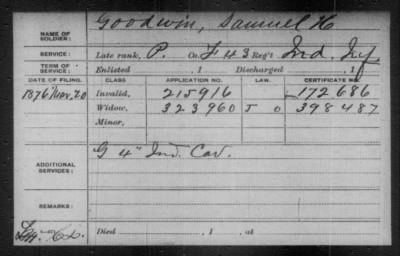 Goodwin, Samuel H
NAME OF SOLDIER:
SERVICE: Late rank, P. Co. F 43 Reg't Ind. Inf
TERM OF SERVICE: Enlisted , 1 Discharged , 1
DATE OF FILING. CLASS APPLICATION NO. LAW. CERTIFICATE NO.
1876 Mar. 20 Invalid, 215916 172686
Widow, 323960 J O 398487
Minor,
ADDITIONAL SERVICES: G 4" Ind. Cav.
REMARKS:
Died , 1 , at